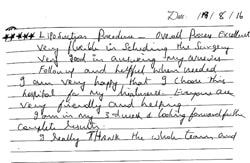 Date: 18/8/16
***** Liposuction Procedure - Overall Process Excellent
Very flexible in Scheduling the Surgery
Very Good in answering my queries
Followup and helpful when needed
I am very happy that I chose this
hospital for my treatment. Everyone are
very friendly and helping
I am in my 3rd week & looking forward for the
complete results.
I really THANK the whole team and